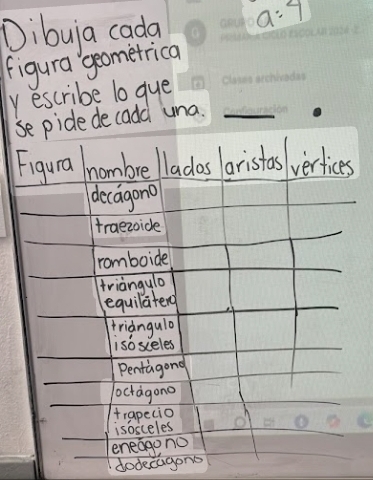 a:4
Dibuja cada
figura geométrica
y escribe lo que
se pide de cada una.
GRUPO
CICLO ESCOLAR 2024
Clases archivadas
Configuración
Figura nombre lados aristas vértices
decágono
traezoide
romboide
triángulo
equilátero
triángulo
isósceles
Pentágono
octágono
trapecio
isósceles
eneágono
dodecágono